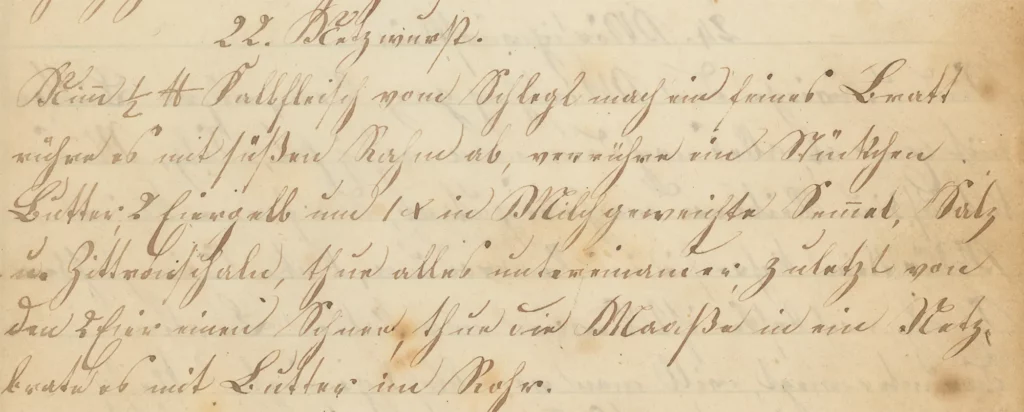 22. Netzwurst.
Nim̄ ½ ℔ Kalbfleisch vom Schlegl mach ein feines Bratt
rühre es mit süßen Rahm ab, verrühre ein Stückchen
Butter, 2 Eiergelb um 1 x in Milch geweichte Sem̄el, Salz
u. Zittronschaln, thue alles untereinander, zuletzt von
den 2 Eier einen Schnee, thue die Maaße in ein Netz,
brate es mit Butter im Rohr.